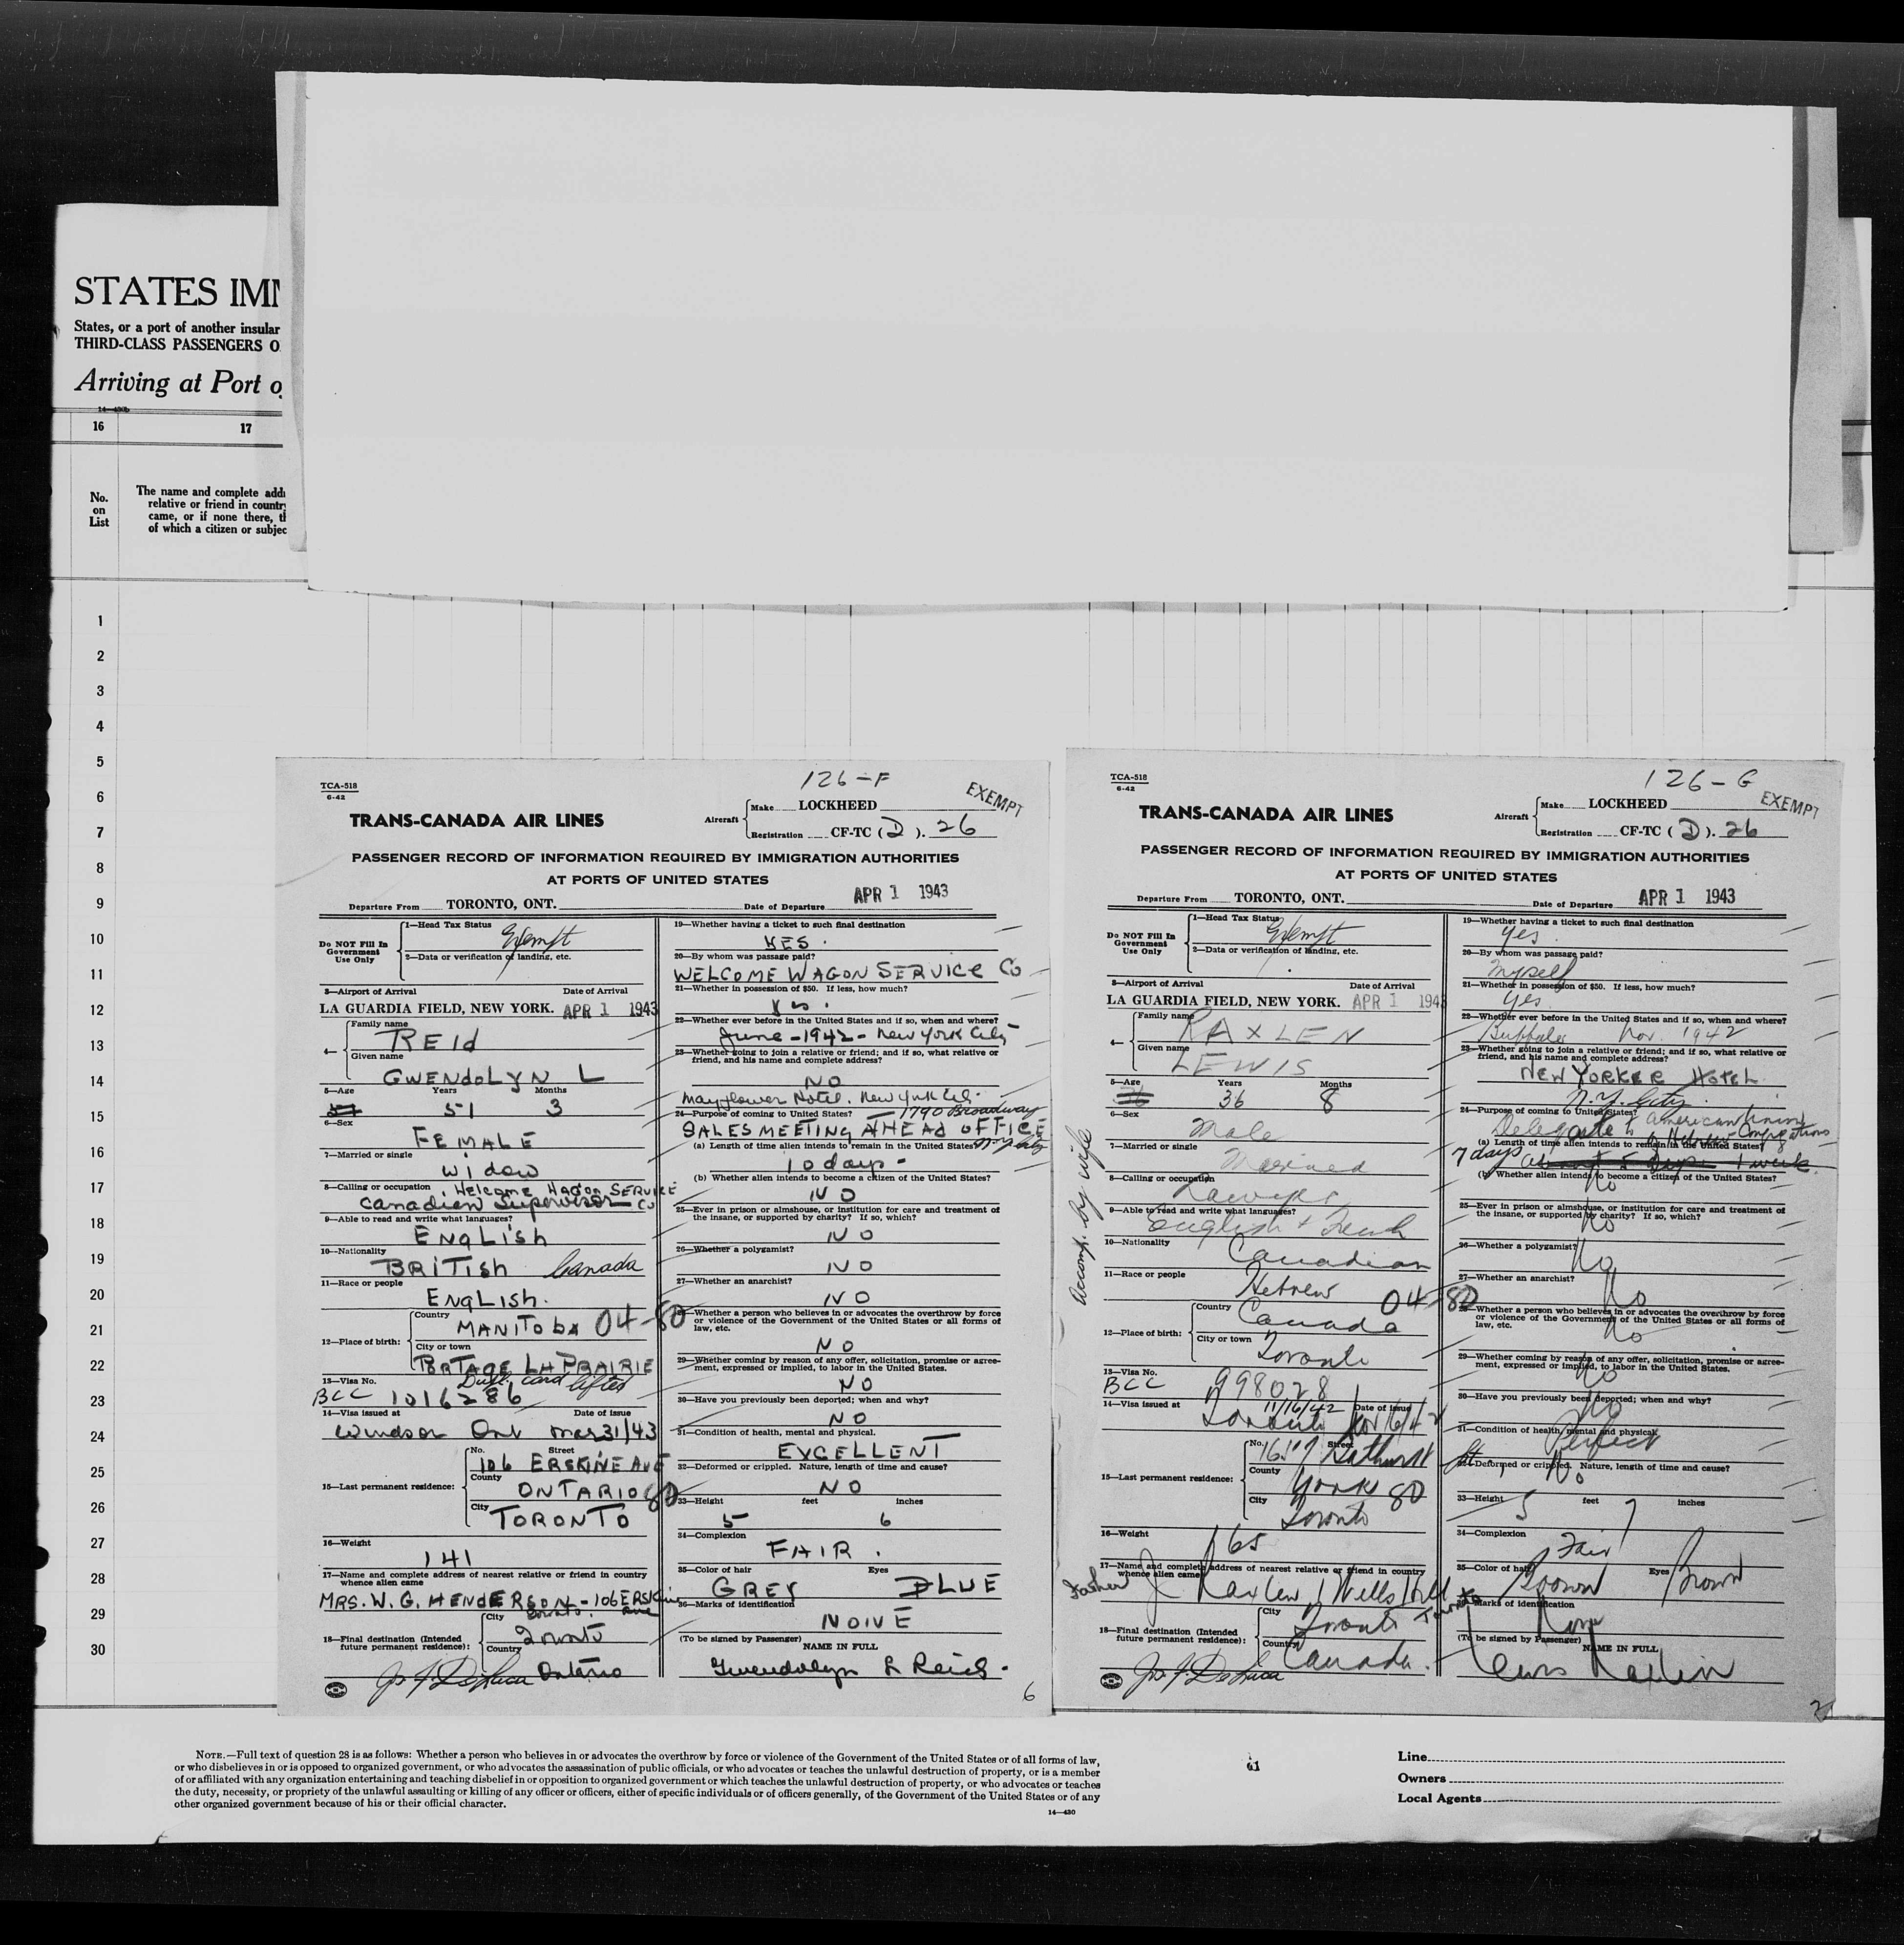 STATES IMM
States, or a port of another insular
THIRD-CLASS PASSENGERS O
Arriving at Port o
14—430b
16 17
No. on List
The name and complete addr
relative or friend in country
came, or if none there, th
of which a citizen or subjec
1
2
3
4
5
6
7
8
9
10
11
12
13
14
15
16
17
18
19
20
21
22
23
24
25
26
27
28
29
30
126-F
TCA-518
6-42
EXEMPT
TRANS-CANADA AIR LINES
Aircraft Make LOCKHEED
Registration CF-TC (D). 26
PASSENGER RECORD OF INFORMATION REQUIRED BY IMMIGRATION AUTHORITIES
AT PORTS OF UNITED STATES
Departure From TORONTO, ONT. Date of Departure APR 1 1943
Do NOT Fill In Government Use Only
1—Head Tax Status
Exempt
2—Data or verification of landing, etc.
3—Airport of Arrival Date of Arrival
LA GUARDIA FIELD, NEW YORK. APR 1 1943
4— Family name
REId
Given name
GWENdOLYN L
5—Age Years Months
51 3
6—Sex
FEMALE
7—Married or single
widow
8—Calling or occupation Welcome Wagon SERVICE
Canadian Supervisor Co
9—Able to read and write what languages?
ENGLish
10—Nationality
BRITish Canada
11—Race or people
ENGLish.
12—Place of birth: Country
MANITOba 04-80
City or town
PORTAGE LA PRAIRIE
13—Visa No. Dupl. card lifted
BCC 1016286
14—Visa issued at Date of issue
Windsor Ont Mar 31/43
15—Last permanent residence: No. Street
106 ERSKINE AVE
County
ONTARIO 80
City
TORONTO
16—Weight
141
17—Name and complete address of nearest relative or friend in country whence alien came
MRS. W. G. HENDERSON - 106 ERSKine
Toronto. ave
18—Final destination (Intended future permanent residence): City
Toronto
Country
Ontario
19—Whether having a ticket to such final destination
YES.
20—By whom was passage paid?
WELCOME WAGON SERVICE Co
21—Whether in possession of $50. If less, how much?
Yes.
22—Whether ever before in the United States and if so, when and where?
June - 1942 - New York City
23—Whether going to join a relative or friend; and if so, what relative or
friend, and his name and complete address?
NO
Mayflower Hotel. New York City.
24—Purpose of coming to United States? 1790 Broadway
SALES MEETING AT HEAD OFFICE
N.Y. City
(a) Length of time alien intends to remain in the United States?
10 days -
(b) Whether alien intends to become a citizen of the United States?
NO
25—Ever in prison or almshouse, or institution for care and treatment of
the insane, or supported by charity? If so, which?
NO
26—Whether a polygamist?
NO
27—Whether an anarchist?
NO
28—Whether a person who believes in or advocates the overthrow by force
or violence of the Government of the United States or all forms of
law, etc.
NO
29—Whether coming by reason of any offer, solicitation, promise or agree-
ment, expressed or implied, to labor in the United States.
NO
30—Have you previously been deported; when and why?
NO
31—Condition of health, mental and physical.
EXCELLENT
32—Deformed or crippled. Nature, length of time and cause?
NO
33—Height feet inches
5 6
34—Complexion
FAIR.
35—Color of hair Eyes
GREY BLUE
36—Marks of identification
NONE
(To be signed by Passenger)
NAME IN FULL
Gwendolyn L Reid.
6
126-G
TCA-518
6-42
EXEMPT
TRANS-CANADA AIR LINES
Aircraft Make LOCKHEED
Registration CF-TC (D). 26
PASSENGER RECORD OF INFORMATION REQUIRED BY IMMIGRATION AUTHORITIES
AT PORTS OF UNITED STATES
Departure From TORONTO, ONT. Date of Departure APR 1 1943
Do NOT Fill In Government Use Only
1—Head Tax Status
Exempt
2—Data or verification of landing, etc.
3—Airport of Arrival Date of Arrival
LA GUARDIA FIELD, NEW YORK. APR 1 1943
4— Family name
RAXLEN
Given name
LEWIS
5—Age Years Months
36 8
6—Sex
Male
7—Married or single
Married
8—Calling or occupation
Lawyer
9—Able to read and write what languages?
English + French
10—Nationality
Canadian
11—Race or people
Hebrew 04-80
12—Place of birth: Country
Canada
City or town
Toronto
13—Visa No.
BCC 998028
14—Visa issued at 11/16/42 Date of issue
Toronto Nov 16/42
15—Last permanent residence: No. Street
Bathurst St
County
York 80
City
Toronto
16—Weight
165
17—Name and complete address of nearest relative or friend in country whence alien came
Father J Raxlen 1 Wells Hill
Toronto
18—Final destination (Intended future permanent residence): City
Toronto
Country
Canada.
Accomp. by wife
19—Whether having a ticket to such final destination
yes.
20—By whom was passage paid?
Myself
21—Whether in possession of $50. If less, how much?
Yes.
22—Whether ever before in the United States and if so, when and where?
Buffalo Nov. 1942
23—Whether going to join a relative or friend; and if so, what relative or
friend, and his name and complete address?
NEW YORKER HOTEL
N.Y. City.
24—Purpose of coming to United States?
Delegate to American Union
of Hebrew Congregations
(a) Length of time alien intends to remain in the United States?
7 days about 5 days 1 week.
(b) Whether alien intends to become a citizen of the United States?
No
25—Ever in prison or almshouse, or institution for care and treatment of
the insane, or supported by charity? If so, which?
No
26—Whether a polygamist?
No
27—Whether an anarchist?
No
28—Whether a person who believes in or advocates the overthrow by force
or violence of the Government of the United States or all forms of
law, etc.
No
29—Whether coming by reason of any offer, solicitation, promise or agree-
ment, expressed or implied, to labor in the United States.
No
30—Have you previously been deported; when and why?
No
31—Condition of health, mental and physical.
Perfect
32—Deformed or crippled. Nature, length of time and cause?
No
33—Height feet inches
5 7
34—Complexion
Fair
35—Color of hair Eyes
Brown Brown
36—Marks of identification
None
(To be signed by Passenger)
NAME IN FULL
Lewis Raxlen
2
NOTE.—Full text of question 28 is as follows: Whether a person who believes in or advocates the overthrow by force or violence of the Government of the United States or of all forms of law,
or who disbelieves in or is opposed to organized government, or who advocates the assassination of public officials, or who advocates or teaches the unlawful destruction of property, or is a member
of or affiliated with any organization entertaining and teaching disbelief in or opposition to organized government or which teaches the unlawful destruction of property, or who advocates or teaches
the duty, necessity, or propriety of the unlawful assaulting or killing of any officer or officers, either of specific individuals or of officers generally, of the Government of the United States or of any
other organized government because of his or their official character.
14—430
61
Line
Owners
Local Agents